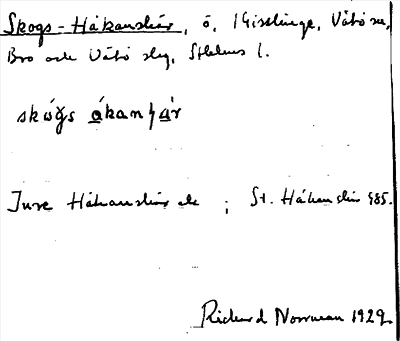 Skogs-Håkanskär, ö, i Gisslinge, Vätö sn,
Bro och Vätö slg, Sthlms l.
skógs ákanʃár
Jure Håkanskär ek ; St. Håkanskär 985.
Richard Norrman 1929.